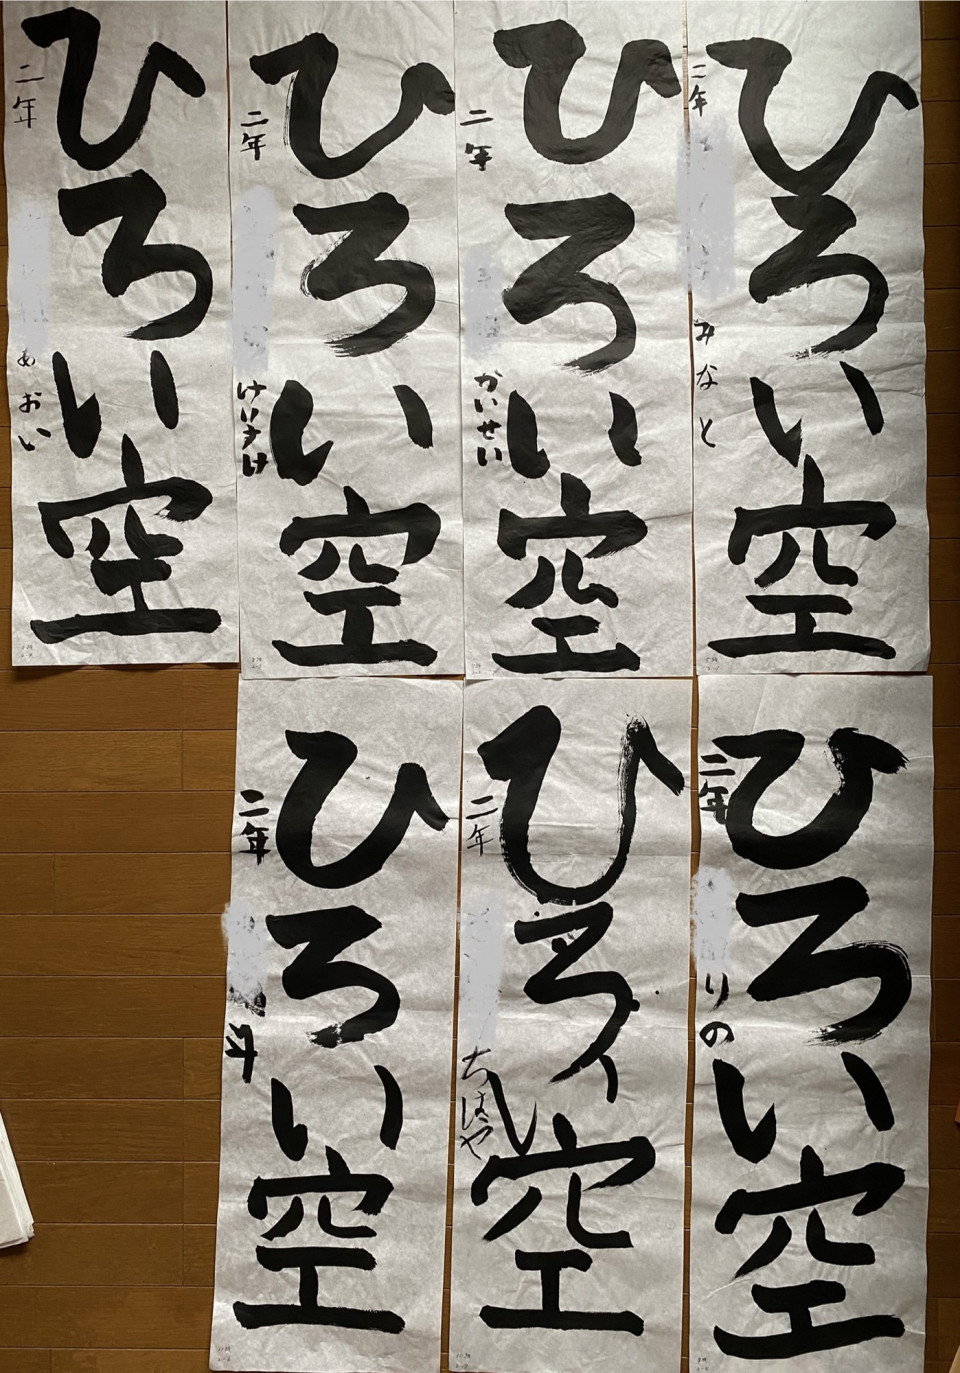 ひろい空
二年
あおい
ひろい空
二年
けいすけ
ひろい空
二年
かいせい
ひろい空
二年
みなと
ひろい空
二年
ひろい空
二年
ちはや
ひろい空
二年
りの